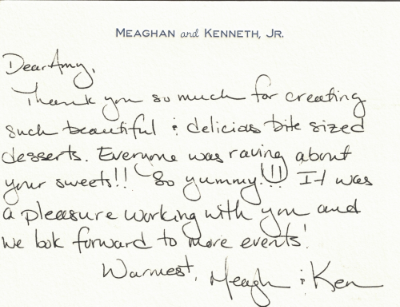 MEAGHAN and KENNETH, JR.
Dear Amy,
Thank you so much for creating
such beautiful & delicias bite sized
desserts. Everyone was raving about
your sweets!! So yummy!!! It was
a pleasure working with you and
we look forward to more events!
Warmest, Meagh & Ken